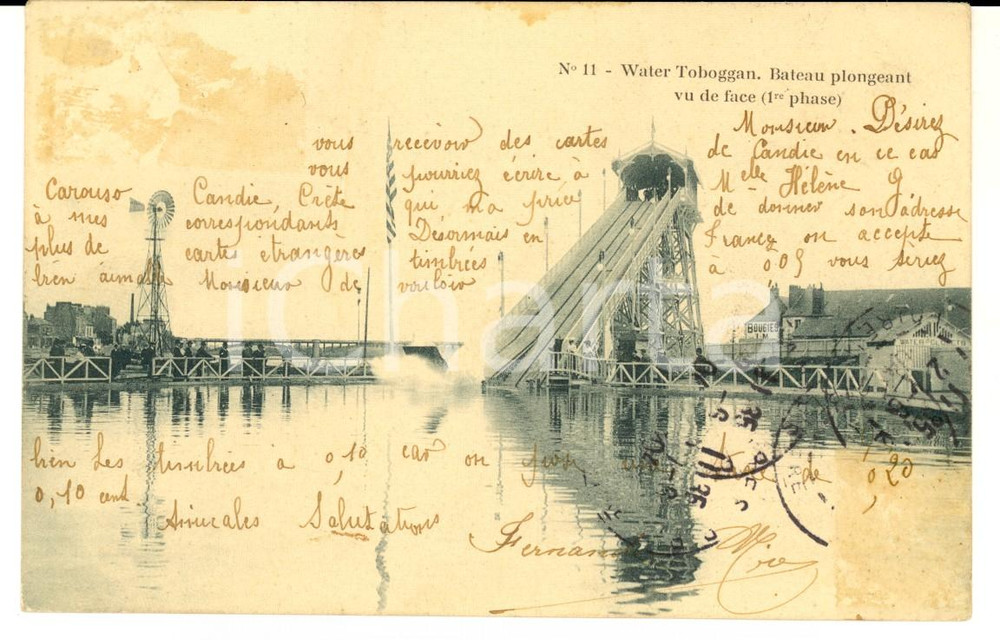 Nº 11 - Water Toboggan. Bateau plongeant
vu de face (1re phase)
Monsieur. Désirez
vous recevoir des cartes de Candie en ce cas
vous pourriez écrire à Melle Hélène G.
Carouso Candie, Crète qui m'a prié de donner son adresse
à mes correspondants Désormais en France on accepte
plus de cartes étrangères timbrées à 0,05 vous seriez
bien aimable Monsieur de vouloir
bien les timbrées a 0,10 car on
0,10 cent de 0,20
Amicales Salutations
Fernand
BOUGIES
icharta